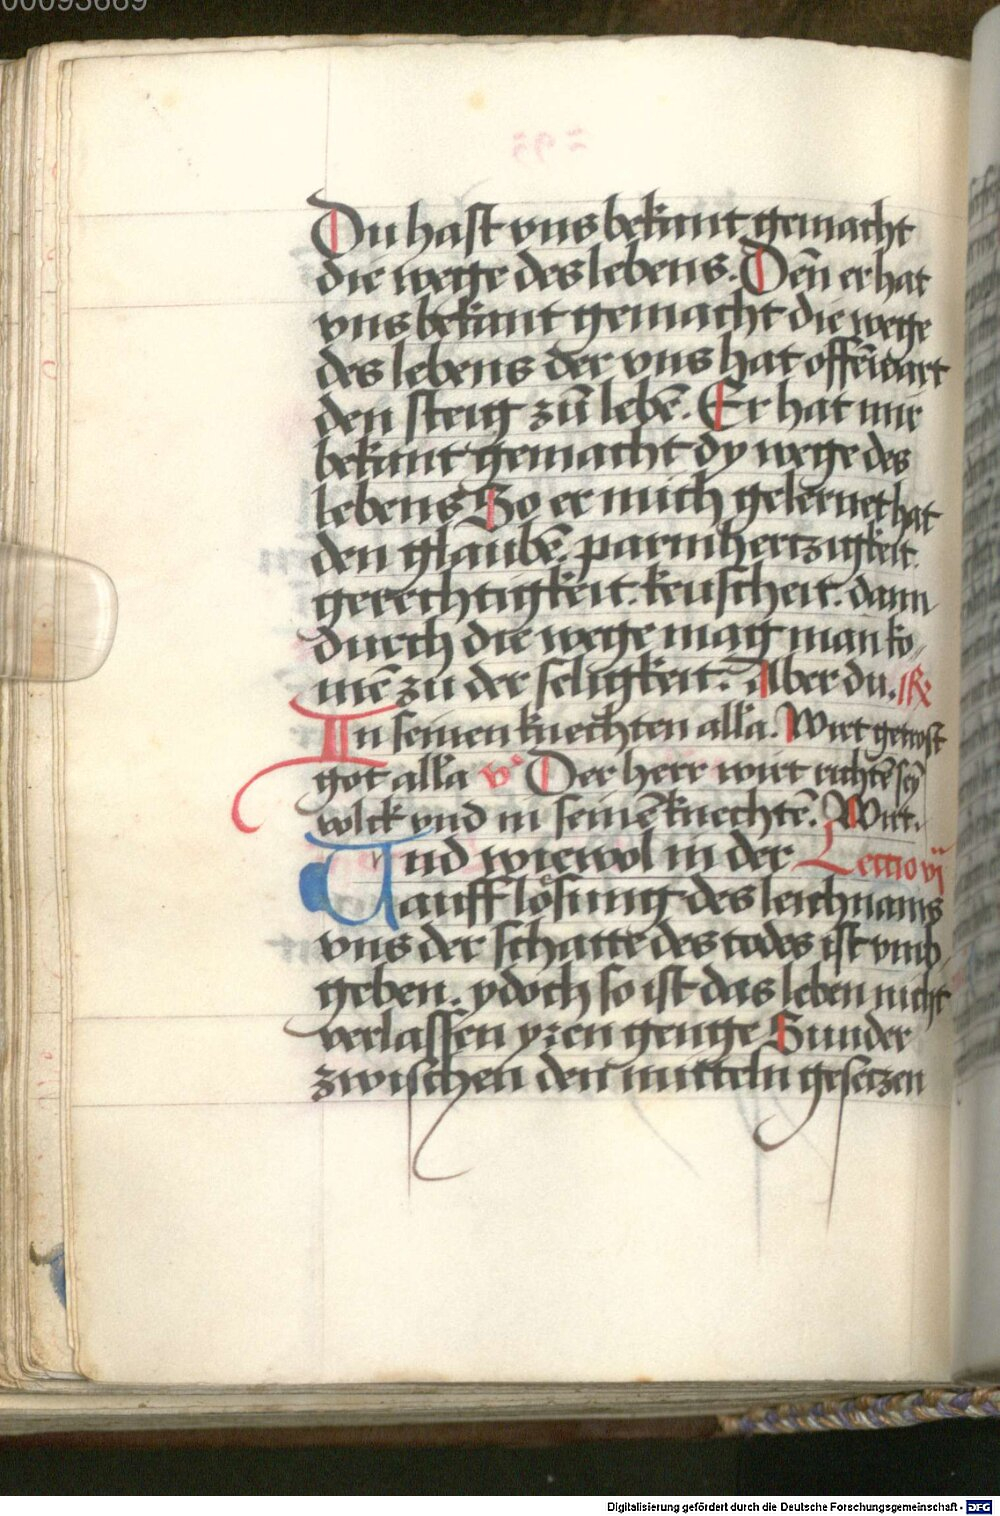 00093669
Du hast vns bekant gemacht
die wege des lebens. Den̄ er hat
vns bekant gemacht die wege
des lebens der vns hat offēwart
den steig zū lebē. Er hat mir
bekant gemacht dy wege des
lebens So er mich gelernet hat
den glaubē. parmhertzigkeit.
gerechtigkeit. keuscheit. dann
durch die wege mag man ko
mē zu der seligkeit. Aber du. R̄
In seinen knechten alla. Wirt getrost
got alla v̊ Der herr wirt richtē sey̅
volck vnd in seinē knechtē. Wirt.
Vnd wiewol in der Lectio vij
aufflösung des leichnams
vns der schatte des todes ist vmb
geben. ydoch so ist das leben nicht
verlassen yzen genge Sunder
zwischen den mitteln gesetzen
Digitalisierung gefördert durch die Deutsche Forschungsgemeinschaft - DFG